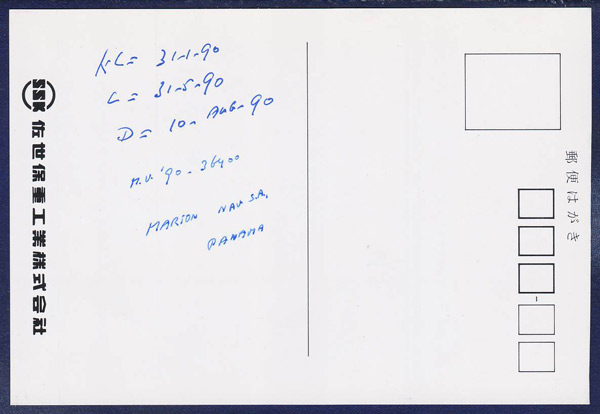 K-L= 31-1-90
L = 31-5-90
D= 10-AUG-90
M.V.'90-36400
MARSON NAV S.A.
PANAMA
SSK 佐世保重工業株式会社
郵便はがき